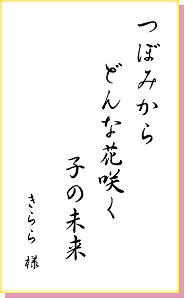 つぼみから
どんな花咲く
子の未来
きらら 様